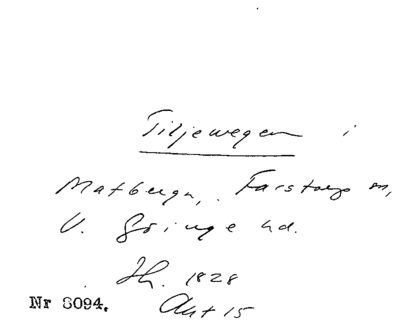 Tiljewegen i
Matbergn, Farstorps sn,
V. Göinge hd.
Jh. 1828
Nr 8094. Akt 15